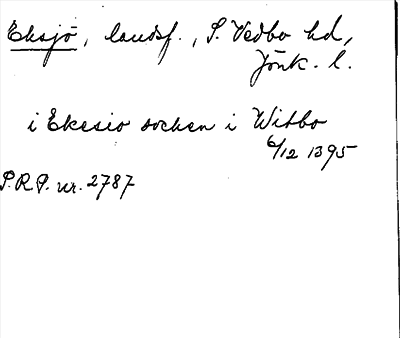 Eksjö, landsf., S. Vedbo hd,
Jönk. l.
i Ekesio sochen i Witbo
6/12 1395
S.R.P. nr. 2787